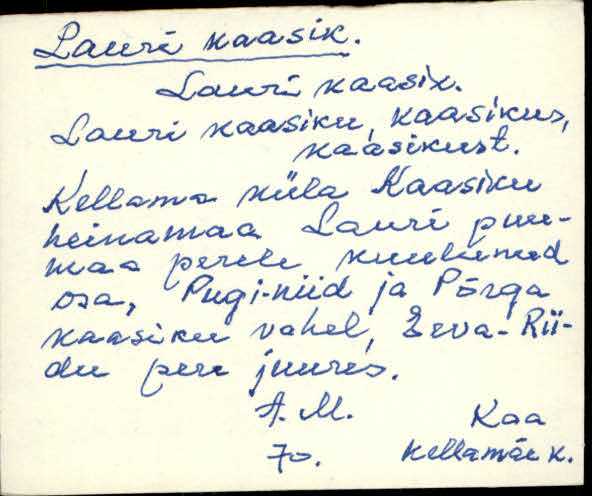 Lauri kaasik.
Lauri kaasik.
Lauri kaasiku, kaasikus,
kaasikust.
Kellama küla Kaasiku
heinamaa Lauri puu-
maa perele kuulunud
osa, Pugi-niid ja Põrga
kaasiku vahel, Eeva-Rii-
du pere juures.
A. M. Kaa
70. Kellamäe k.